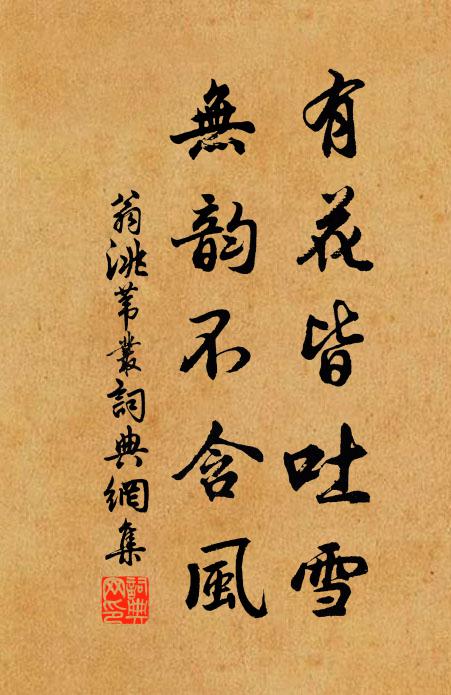 有花皆吐雪
無韵不含風
翁洮葦叢詞典網集
詞典网印